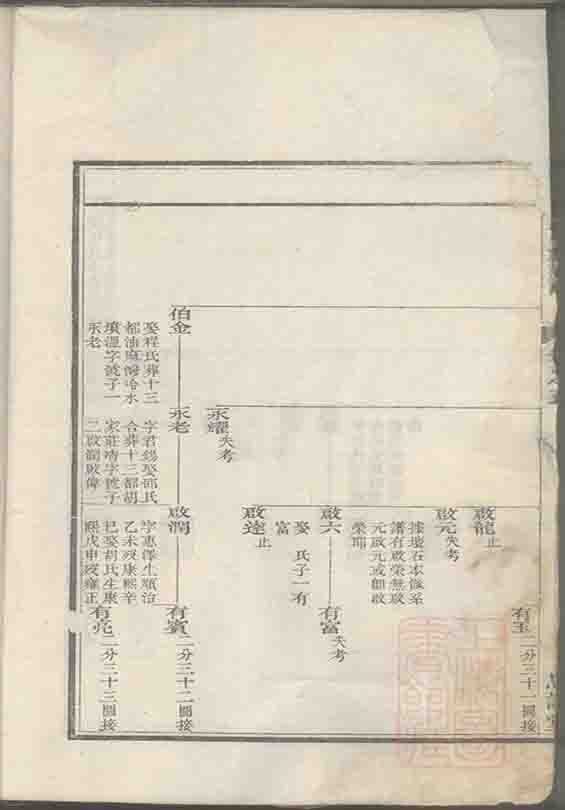 有玉
二分三十一圖接
啟龍止
啟元失考
據壇石本做系
譜有啟榮無啟
元啟元或卽啟
榮耶
啟六
有富失考
娶 氏子一有
富
啟達止
永耀失考
伯金
娶程氏葬十三
都油麻
塘溼字號子一
永老
永老
字君錫娶邵氏
合葬十三都胡
家莊靖字號子
二啟潤啟偉
啟潤
字惠澤生順治
乙未歿康熙辛
巳娶胡氏生康
熙戊申歿雍正
有賓
二分三十二圖接
有亮
二分三十三圖接